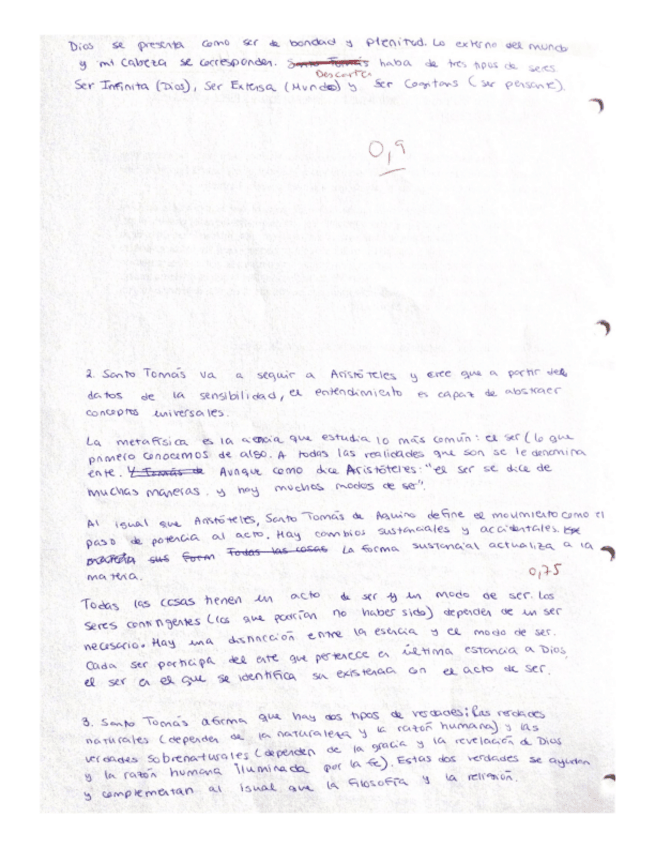 Dios se presenta como ser de bondad y plenitud. Lo externo del mundo
y mi cabeza se corresponden. Santo Tomás haba de tres tipos de seres.
Descartes
Ser Infinita (Dios), Ser Extensa (Mundo) y Ser Cogitans (ser pensante).
0,9
2. Santo Tomás va a seguir a Aristóteles y cree que a partir de
datos de la sensibilidad, el entendimiento es capaz de abstraer
conceptos universales.
La metafísica es la ciencia que estudia lo más común: el ser (lo que
primero conocemos de algo. A todas las realidades que son se le denomina
ente. Y Tomás de Aunque como dice Aristóteles: "el ser se dice de
muchas maneras y hay muchos modos de ser".
Al igual que Aristóteles, Santo Tomás de Aquino define el movimiento como el
paso de potencia al acto. Hay cambios sustanciales y accidentales.
materia sus form Todas las cosas La forma sustancial actualiza a la
materia.
0,75
Todas las cosas tienen un acto de ser y un modo de ser. Los
seres contingentes (los que podrían no haber sido) dependen de un ser
necesario. Hay una distinción entre la esencia y el modo de ser.
Cada ser participa del ente que pertenece en última estancia a Dios,
el ser en el que se identifica su existencia con el acto de ser.
3. Santo Tomás afirma que hay dos tipos de verdades: las verdades
naturales (dependen de la naturaleza y la razón humana) y las
verdades sobrenaturales (dependen de la gracia y la revelación de Dios
y la razón humana iluminada por la fe). Estas dos verdades se ayudan
y complementan al igual que la filosofía y la religión.